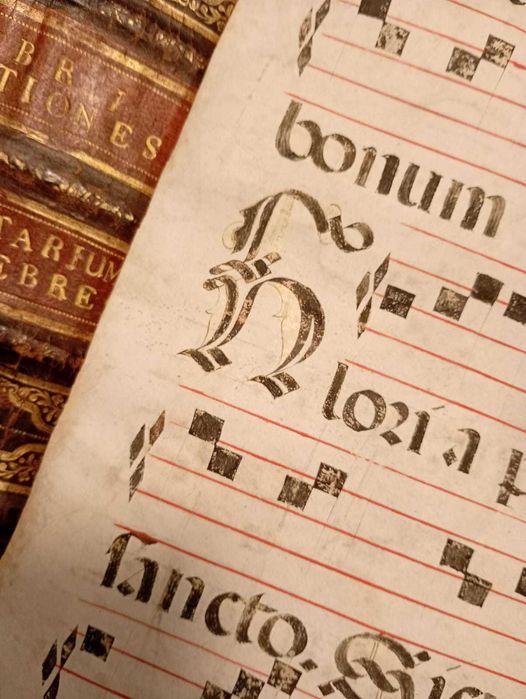 BRI
TIONES
TARFUM
EBRE
bonum
Gloria p
sancto. Sic